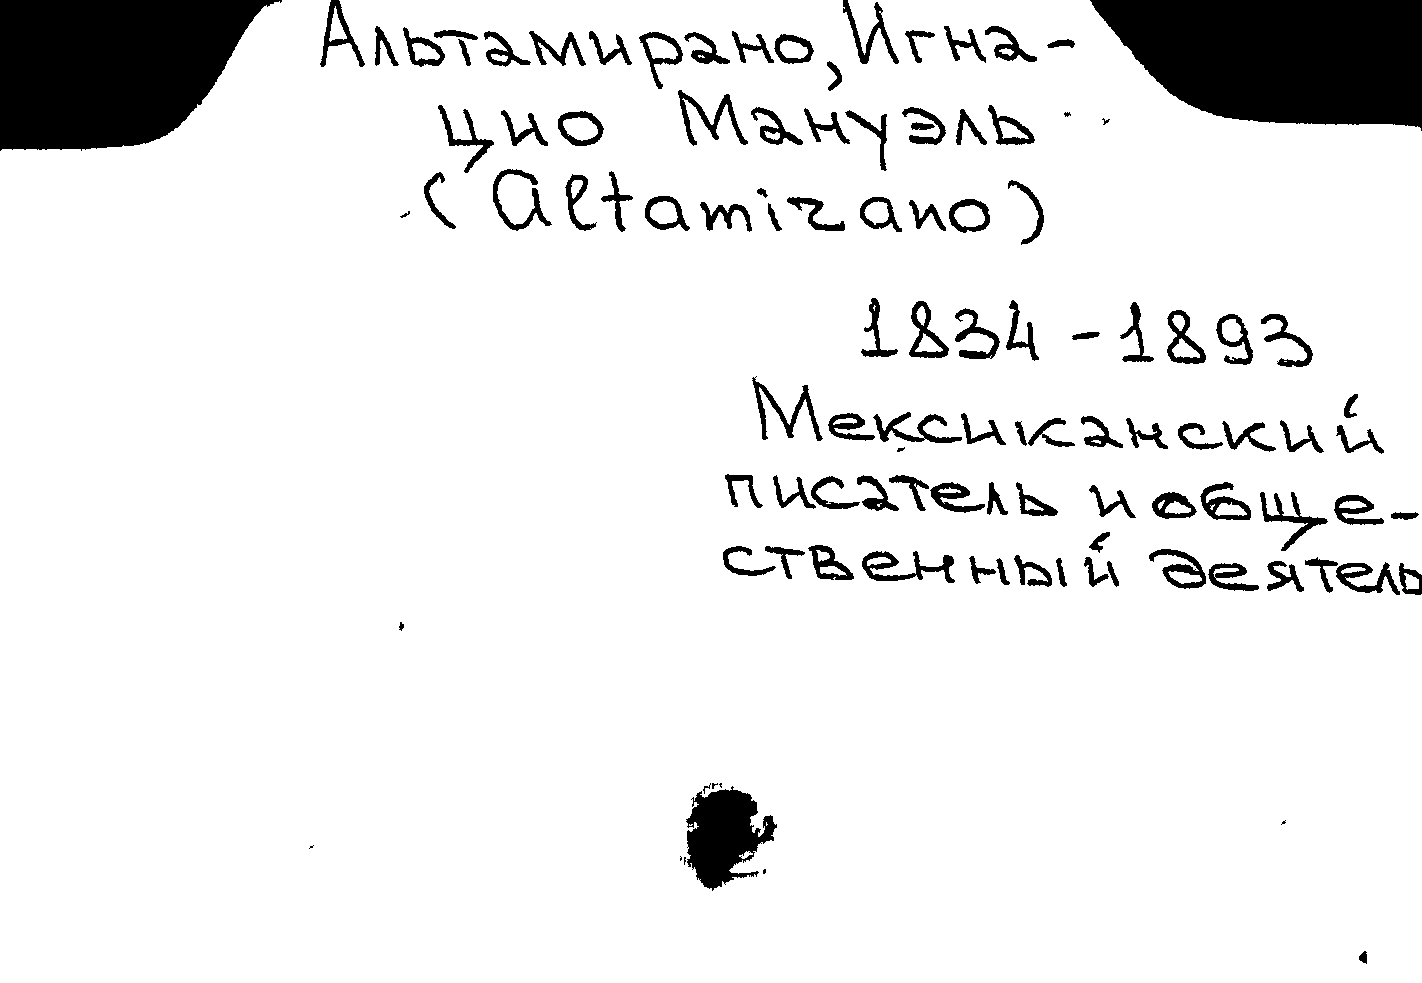 Альтамирано, Игна-
цио Мануэль
(Altamirano)
1834-1893
Мексиканский
писатель и обще-
ственный деятель